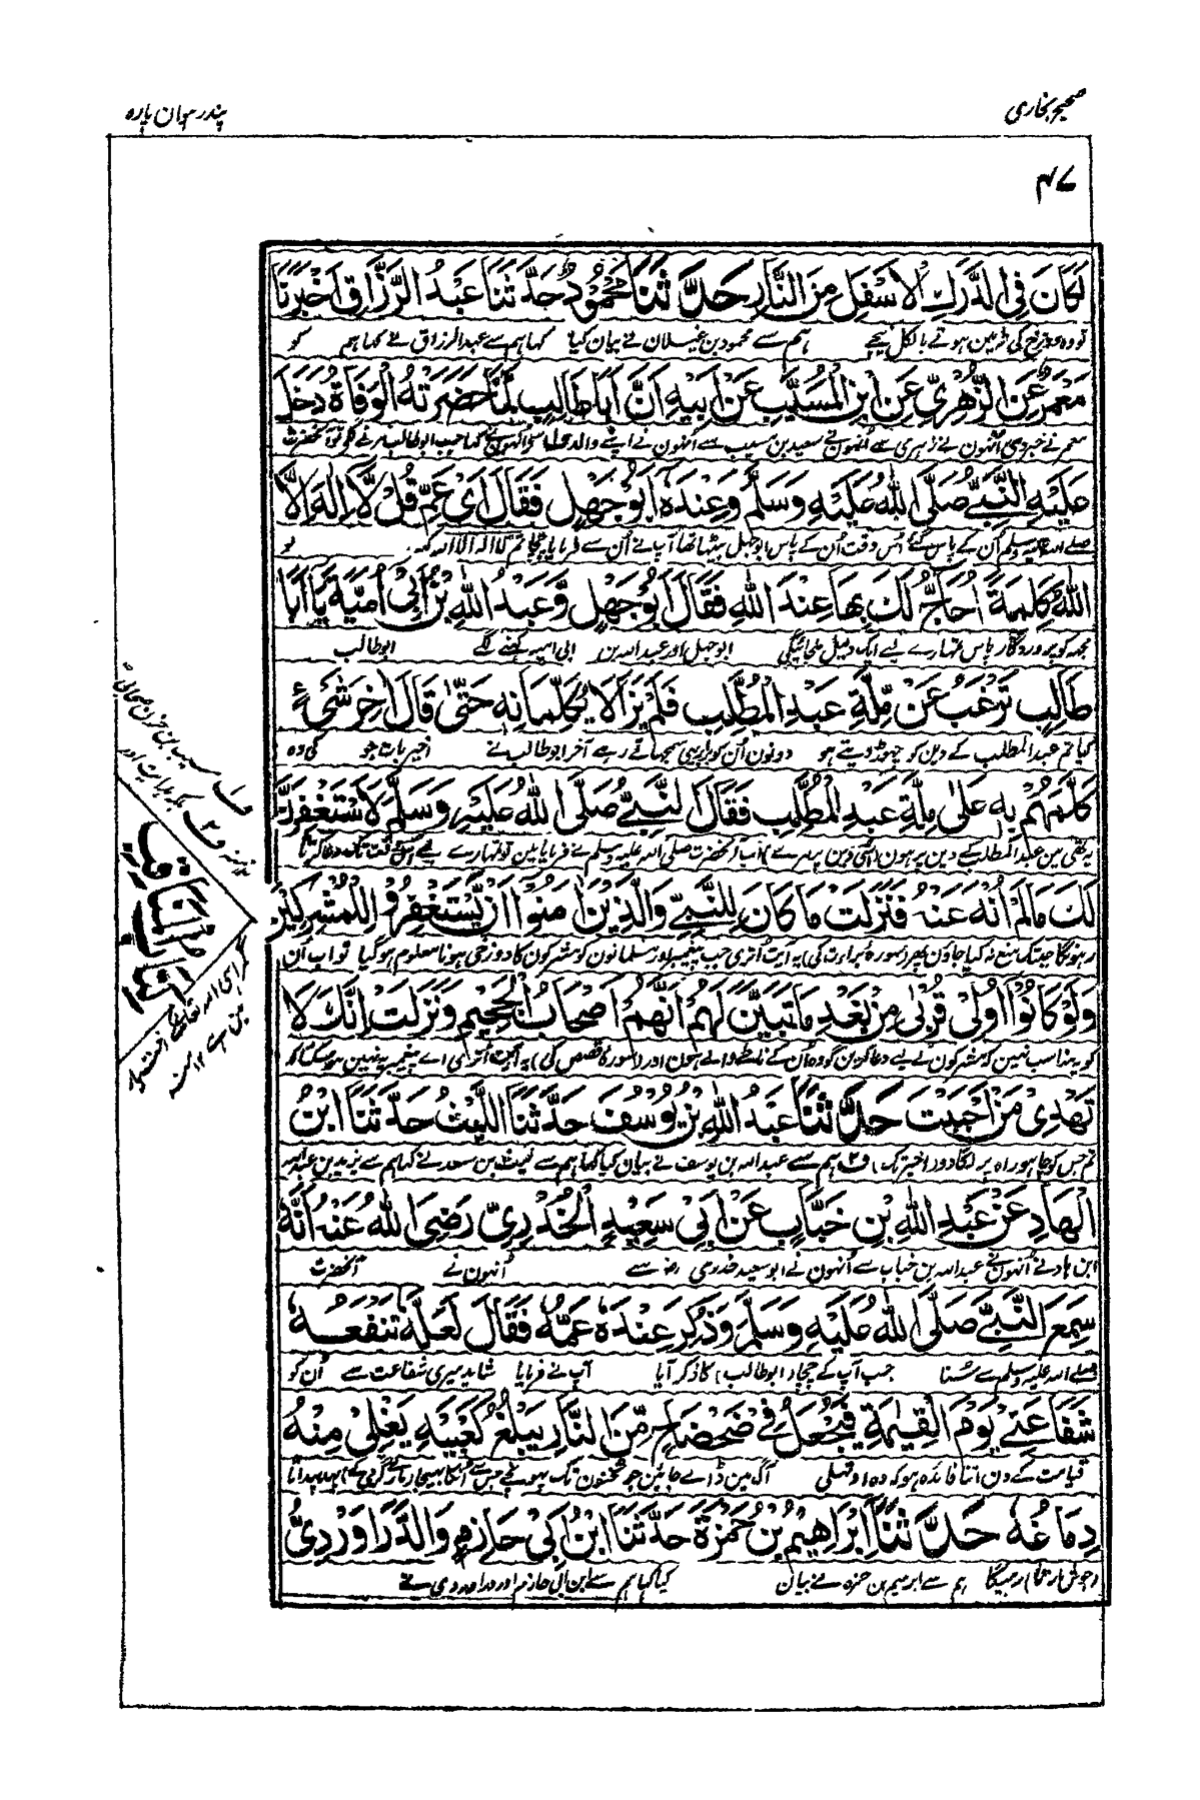 صحیح بخاری
پندرہوان پارہ
۴۷
لَكَانَ فِي الدَّرَكِ الْاَسْفَلِ مِنَ النَّارِ حَدَّثَنَا مَحْمُوْدٌ حَدَّثَنَا عَبْدُ الرَّزَّاقِ اَخْبَرَنَا
تو وہ دوزخ کی تہ مین ہوتے بالکل نیچے ہم سے محمود بن غیلان نے بیان کیا کہا ہم سے عبدالرزاق نے کہا ہم کو
مَعْمَرٌ عَنِ الزُّهْرِيِّ عَنِ ابْنِ الْمُسَيَّبِ عَنْ اَبِيْهِ اَنَّ اَبَا طَالِبٍ لَمَّا حَضَرَتْهُ الْوَفَاةُ دَخَلَ
معمر نے خبر دی اُنہون نے زہری سے اُنہون نے سعید بن مسیب سے اُنہون نے اپنے والد سے اُنہون نے کہا جب ابوطالب مرنے لگے تو آنحضرت
عَلَيْهِ النَّبِيُّ صَلَّى اللهُ عَلَيْهِ وَسَلَّمَ وَعِنْدَهٗ اَبُوْ جَهْلٍ فَقَالَ اَيْ عَمِّ قُلْ لَّا اِلٰهَ اِلَّا
صلے اللہ علیہ وسلم اُن کے پاس گئے اُس وقت اُن کے پاس ابوجہل بیٹھا تھا آپ نے اُن سے فرمایا چچا تم لا الہ الا اللہ کہہ لو
اللهُ كَلِمَةً اُحَاجُّ لَكَ بِهَا عِنْدَ اللهِ فَقَالَ اَبُوْ جَهْلٍ وَّعَبْدُ اللهِ بْنُ اَبِيْ اُمَيَّةَ يَا اَبَا
مجھ کو پروردگار پاس تمہارے لیے ایک دلیل ملجائیگی ابوجہل اور عبداللہ بن ابی امیہ کہنے لگے ابوطالب
طَالِبٍ تَرْغَبُ عَنْ مِّلَّةِ عَبْدِ الْمُطَّلِبِ فَلَمْ يَزَالَا يُكَلِّمَانِهٖ حَتّٰى قَالَ اٰخِرَ شَيْءٍ
کیا تم عبدالمطلب کے دین کو چھوڑ دیتے ہو دونون اُن کو برابر یہی سمجھاتے رہے آخر ابوطالب نے اخیر بات جو کی وہ
كَلَّمَهُمْ بِهٖ عَلٰى مِلَّةِ عَبْدِ الْمُطَّلِبِ فَقَالَ النَّبِيُّ صَلَّى اللهُ عَلَيْهِ وَسَلَّمَ لَاَسْتَغْفِرَنَّ
یہ تھی مین عبدالمطلب کے دین پر ہون آنحضرت صلی اللہ علیہ وسلم نے فرمایا مین تو تمہارے لیے اُس وقت تک دعا کرتا
لَكَ مَا لَمْ اُنْهَ عَنْهُ فَنَزَلَتْ مَا كَانَ لِلنَّبِيِّ وَالَّذِيْنَ اٰمَنُوْا اَنْ يَّسْتَغْفِرُوْا لِلْمُشْرِكِيْنَ
رہونگا جبتک منع نہ کیا جاؤن پھر (سورہ براءت کی) یہ آیت اُتری جب پیغمبر اور مسلمانون کو مشرکون کا دوزخی ہونا معلوم ہوگیا تو اب اُن
وَلَوْ كَانُوْا اُولِيْ قُرْبٰى مِنْ بَعْدِ مَا تَبَيَّنَ لَهُمْ اَنَّهُمْ اَصْحَابُ الْجَحِيْمِ وَنَزَلَتْ اِنَّكَ لَا
کو یہ مناسب نہین کہ مشرکون کے لیے دعا کرین گو وہ اُن کے ناطے والے ہون اور (سورہ قصص کی) یہ آیت اُتری اے پیغمبر یہ نہین ہو سکتا کہ
تَهْدِيْ مَنْ اَحْبَبْتَ حَدَّثَنَا عَبْدُ اللهِ بْنُ يُوْسُفَ حَدَّثَنَا اللَّيْثُ حَدَّثَنَا ابْنُ
تم جس کو چاہو راہ پر لگا دو (اخیر تک) ف۲ ہم سے عبداللہ بن یوسف نے بیان کیا کہا ہم سے لیث بن سعد نے کہا ہم سے یزید بن عبداللہ
الْهَادِ عَنْ عَبْدِ اللهِ بْنِ خَبَّابٍ عَنْ اَبِيْ سَعِيْدٍ الْخُدْرِيِّ رَضِيَ اللهُ عَنْهُ اَنَّهٗ
ابن ہاد نے اُنہون نے عبداللہ بن خباب سے اُنہون نے ابو سعید خدری رضہ سے اُنہون نے آنحضرت
سَمِعَ النَّبِيَّ صَلَّى اللهُ عَلَيْهِ وَسَلَّمَ وَذُكِرَ عِنْدَهٗ عَمُّهٗ فَقَالَ لَعَلَّهٗ تَنْفَعُهٗ
صلے اللہ علیہ وسلم سے سُنا جب آپ کے چچا (ابوطالب) کا ذکر آیا آپ نے فرمایا شاید میری شفاعت سے اُن کو
شَفَاعَتِيْ يَوْمَ الْقِيٰمَةِ فَيُجْعَلُ فِيْ ضَحْضَاحٍ مِّنَ النَّارِ يَبْلُغُ كَعْبَيْهِ يَغْلِيْ مِنْهُ
قیامت کے دن اتنا فائدہ ہو کہ وہ اوتھلی آگ مین ڈالے جائین جو ٹخنون تک پہونچے جس سے اُنکا بھیجا
دِمَاغُهٗ حَدَّثَنَا اِبْرَاهِيْمُ بْنُ حَمْزَةَ حَدَّثَنَا ابْنُ اَبِيْ حَازِمٍ وَالدَّرَاوَرْدِيُّ
(جوش مارتا) رہیگا ہم سے ابراہیم بن حمزہ نے بیان کیا کہا ہم سے ابن ابی حازم اور دراوردی نے
ف۱ مسیب بن حزن صحابی
ف۲